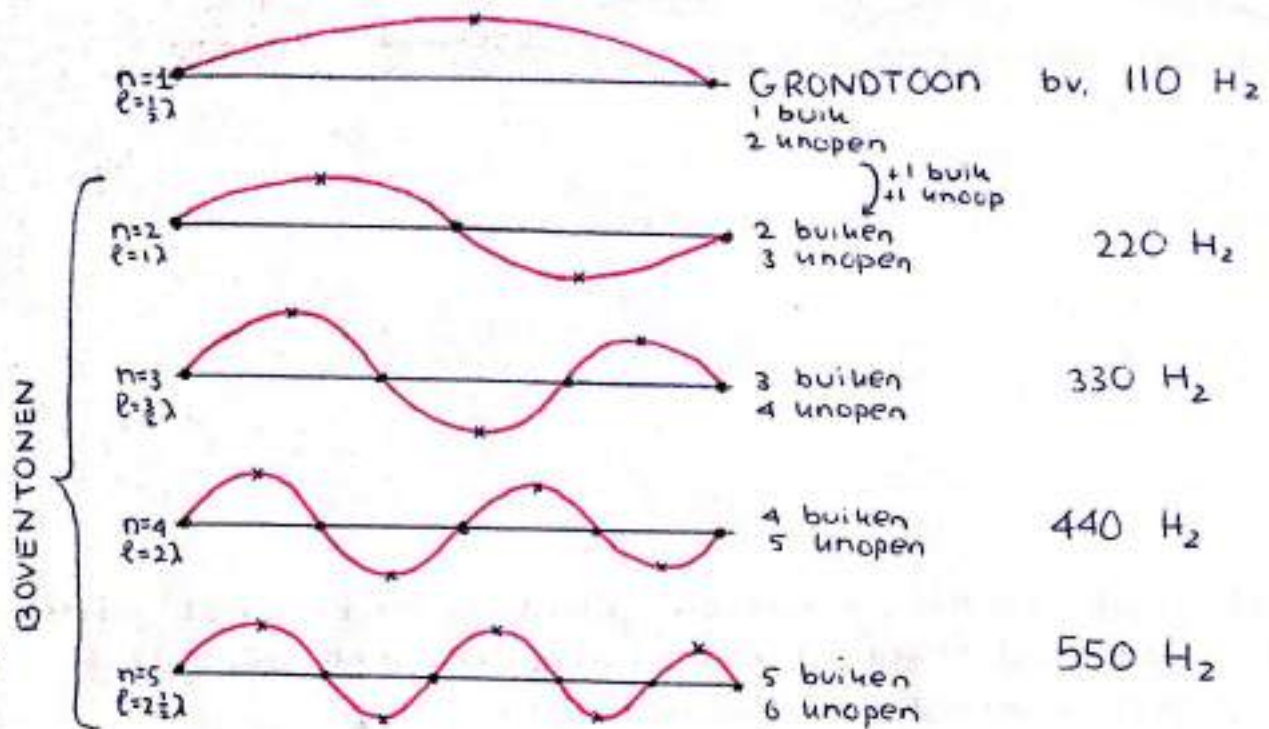 n=1
l=½λ
GRONDTOON bv. 110 Hz
1 buik
2 knopen
+1 buik
+1 knoop
BOVENTONEN
n=2
l=1λ
2 buiken
3 knopen
220 Hz
n=3
l=3/2λ
3 buiken
4 knopen
330 Hz
n=4
l=2λ
4 buiken
5 knopen
440 Hz
n=5
l=2½λ
5 buiken
6 knopen
550 Hz